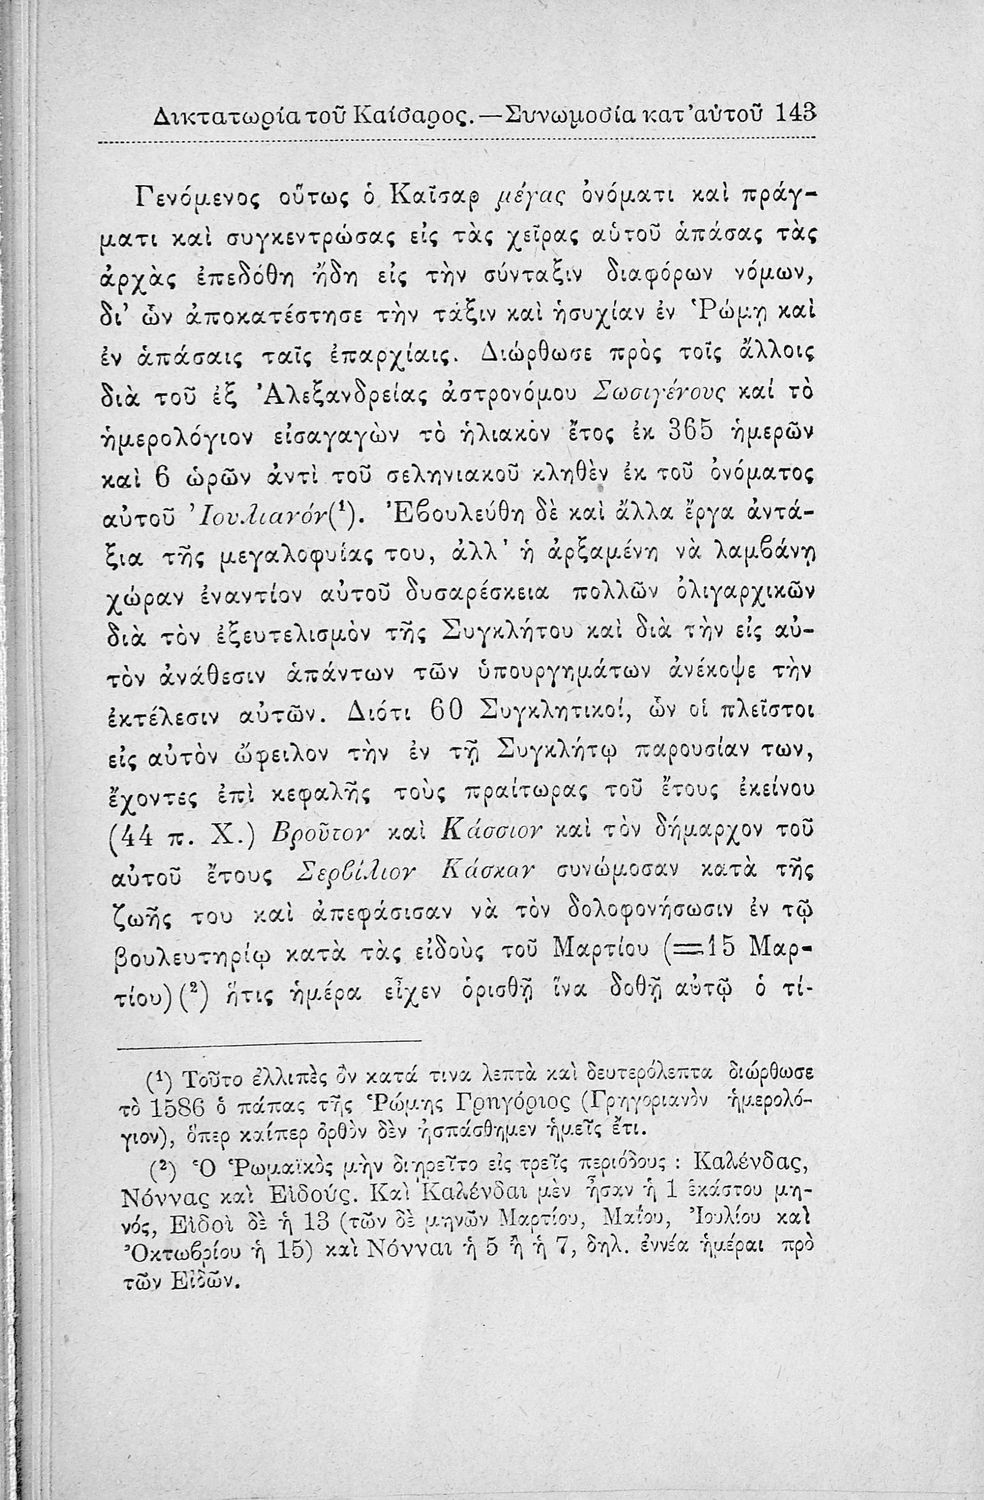 Δικτατωρία τοῦ Καίσαρος.—Συνωμοσία κατ' αὐτοῦ 143
Γενόμενος οὕτως ὁ Καῖσαρ μέγας ὀνόματι καὶ πράγ-
ματι καὶ συγκεντρώσας εἰς τὰς χεῖρας αὑτοῦ ἁπάσας τὰς
ἀρχὰς ἐπεδόθη ἤδη εἰς τὴν σύνταξιν διαφόρων νόμων,
δι' ὧν ἀποκατέστησε τὴν τάξιν καὶ ἡσυχίαν ἐν Ῥώμῃ καὶ
ἐν ἁπάσαις ταῖς ἐπαρχίαις. Διώρθωσε πρὸς τοῖς ἄλλοις
διὰ τοῦ ἐξ Ἀλεξανδρείας ἀστρονόμου Σωσιγένους καί τὸ
ἡμερολόγιον εἰσαγαγὼν τὸ ἡλιακὸν ἔτος ἐκ 365 ἡμερῶν
καὶ 6 ὡρῶν ἀντὶ τοῦ σεληνιακοῦ κληθὲν ἐκ τοῦ ὀνόματος
αὐτοῦ Ἰουλιανόν(¹). Ἐβουλεύθη δὲ καὶ ἄλλα ἔργα ἀντά-
ξια τῆς μεγαλοφυίας του, ἀλλ' ἡ ἀρξαμένη νὰ λαμβάνῃ
χώραν ἐναντίον αὐτοῦ δυσαρέσκεια πολλῶν ὀλιγαρχικῶν
διὰ τὸν ἐξευτελισμὸν τῆς Συγκλήτου καὶ διὰ τὴν εἰς αὐ-
τὸν ἀνάθεσιν ἁπάντων τῶν ὑπουργημάτων ἀνέκοψε τὴν
ἐκτέλεσιν αὐτῶν. Διότι 60 Συγκλητικοί, ὧν οἱ πλεῖστοι
εἰς αὐτὸν ὤφειλον τὴν ἐν τῇ Συγκλήτῳ παρουσίαν των,
ἔχοντες ἐπὶ κεφαλῆς τοὺς πραίτωρας τοῦ ἔτους ἐκείνου
(44 π. Χ.) Βροῦτον καὶ Κάσσιον καὶ τὸν δήμαρχον τοῦ
αὐτοῦ ἔτους Σερβίλιον Κάσκαν συνώμοσαν κατὰ τῆς
ζωῆς του καὶ ἀπεφάσισαν νὰ τὸν δολοφονήσωσιν ἐν τῷ
βουλευτηρίῳ κατὰ τὰς εἰδοὺς τοῦ Μαρτίου (=15 Μαρ-
τίου)(²) ἥτις ἡμέρα εἶχεν ὁρισθῆ ἵνα δοθῇ αὐτῷ ὁ τί-
(¹) Τοῦτο ἐλλιπὲς ὂν κατά τινα λεπτὰ καὶ δευτερόλεπτα διώρθωσε
τὸ 1586 ὁ πάπας τῆς Ῥώμης Γρηγόριος (Γρηγοριανὸν ἡμερολό-
γιον), ὅπερ καίπερ ὀρθὸν δὲν ἠσπάσθημεν ἡμεῖς ἔτι.
(²) Ὁ Ῥωμαϊκὸς μὴν διῃρεῖτο εἰς τρεῖς περιόδους : Καλένδας,
Νόννας καὶ Εἰδούς. Καὶ Καλένδαι μὲν ἦσαν ἡ 1 ἑκάστου μη-
νός, Εἰδοὶ δὲ ἡ 13 (τῶν δὲ μηνῶν Μαρτίου, Μαΐου, Ἰουλίου καὶ
Ὀκτωβρίου ἡ 15) καὶ Νόνναι ἡ 5 ἢ ἡ 7, δηλ. ἐννέα ἡμέραι πρὸ
τῶν Εἰδῶν.